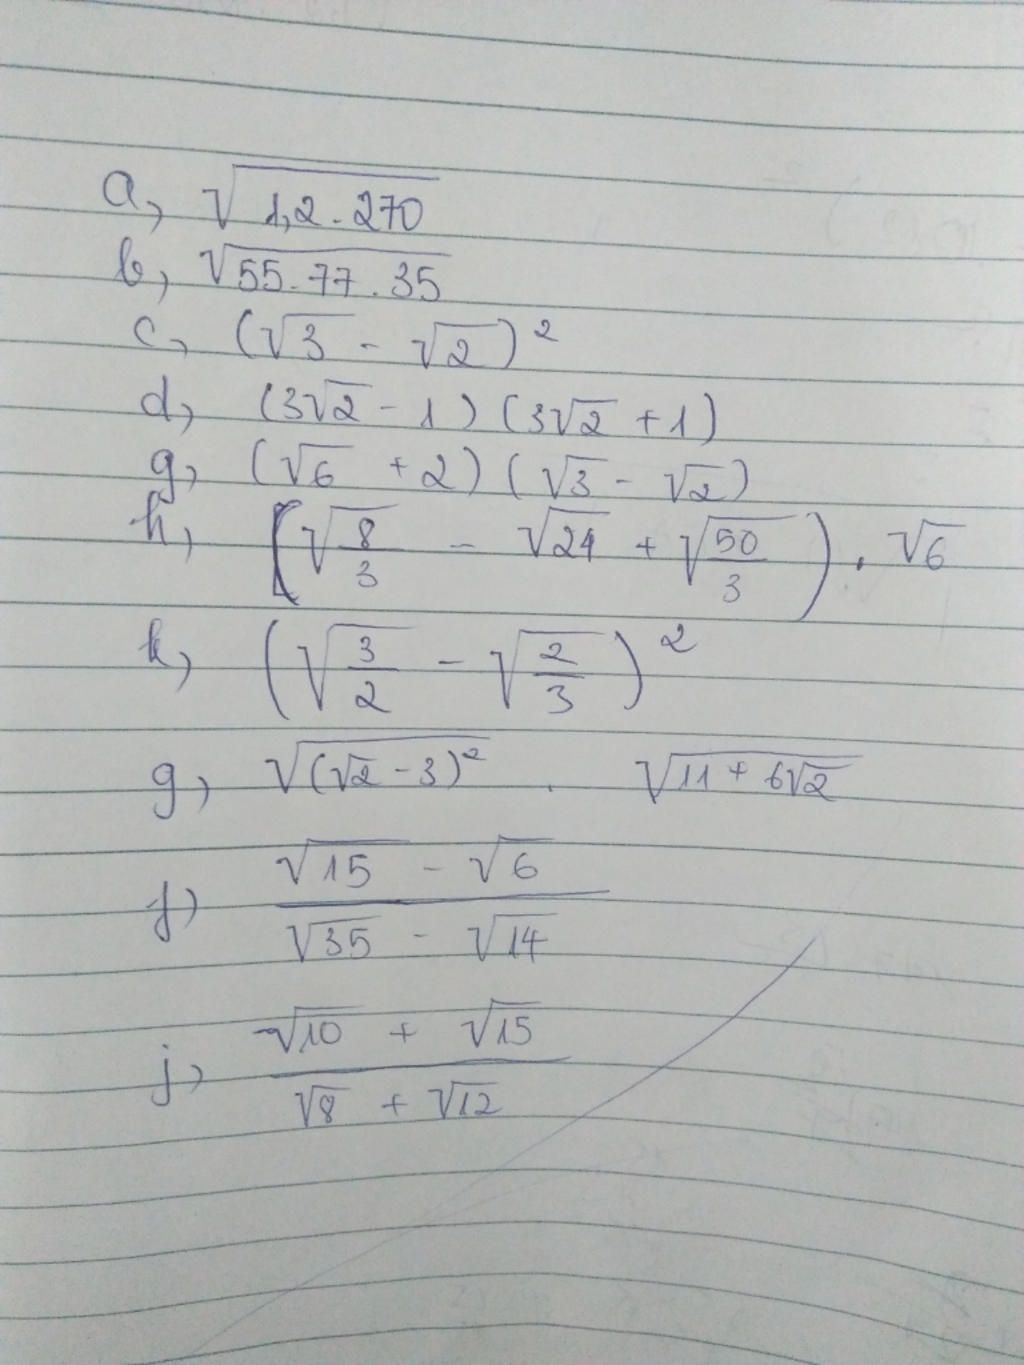 a, √(1,2 . 270)
b, √(55 . 77 . 35)
c, (√3 - √2)²
d, (3√2 - 1)(3√2 + 1)
g, (√6 + 2)(√3 - √2)
h, (√(8/3) - √24 + √(50/3)) . √6
k, (√(3/2) - √(2/3))²
g, √((√2 - 3)²) . √(11 + 6√2)
f) (√15 - √6)/(√35 - √14)
j, (√10 + √15)/(√8 + √12)